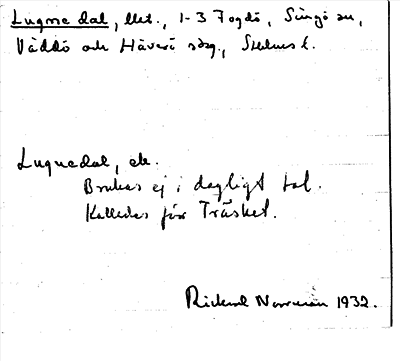 Lugnedal, llht., 1-3 Fogdö, Singö sn,
Väddö och Häverö skg., Sthlms l.
Lugnedal, ek.
Brukas ej i dagligt tal.
Kallades för Träsket.
Rickard Norrman 1932.